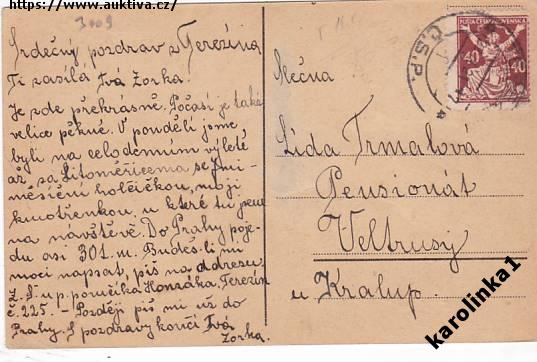 https://www.auktiva.cz/
3009
Srdečný pozdrav z Terezína
Ti zasílá Tvá Zorka.
Je zde překrásně. Počasí je také
velice pěkné. V pondělí jsme
byli na celodenním výletě
až za Litoměřicema se
měsíční holčičkou, mojí
kmotřenkou, u které tu jsem
na návštěvě. Do Prahy poje-
du asi 30t.m. Budeš-li mi
moci napsat, piš na adresu
Z. S. u p. poručíka Honzáka, Terezín
č. 225. - Později piš mi už do
Prahy. S pozdravy končí Tvá
Zorka.
Slečna
Lída Trmalová
Pensionát
Veltrusy
u Kralup.
POŠTA ČESKOSLOVENSKÁ
40 40
Č.S.P.
karolinka1